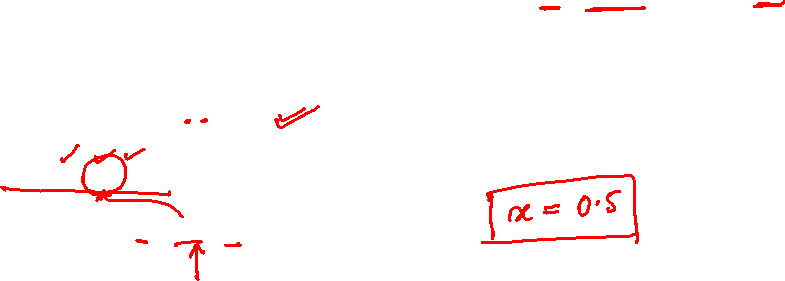 x = 0.5